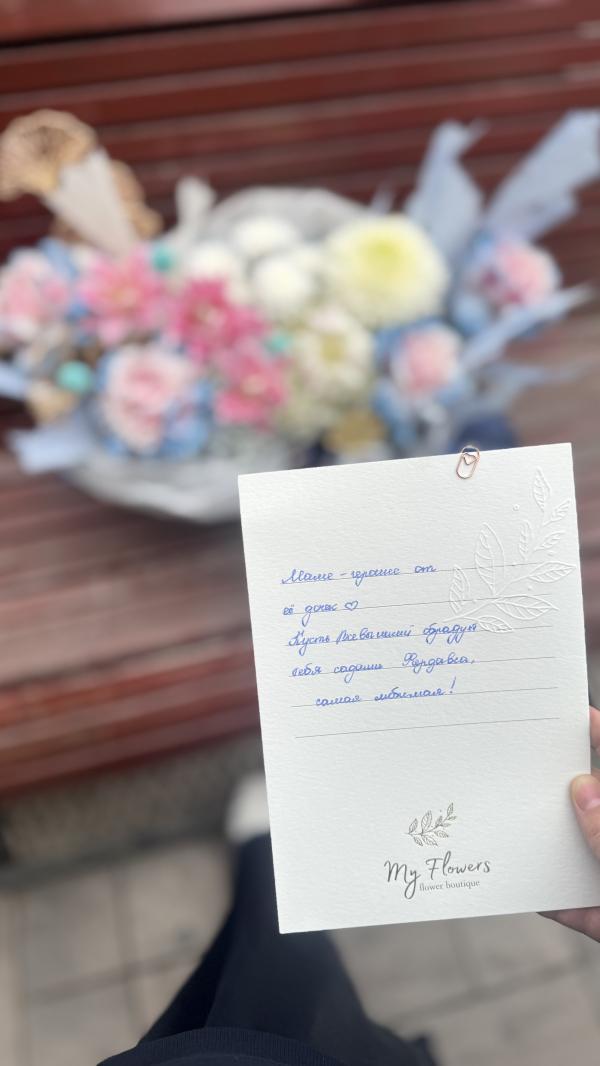 Маме - героине от
её дочек ♡
Пусть Всевышний обрадует
тебя садами Фердавса,
самая любимая!
My Flowers
flower boutique